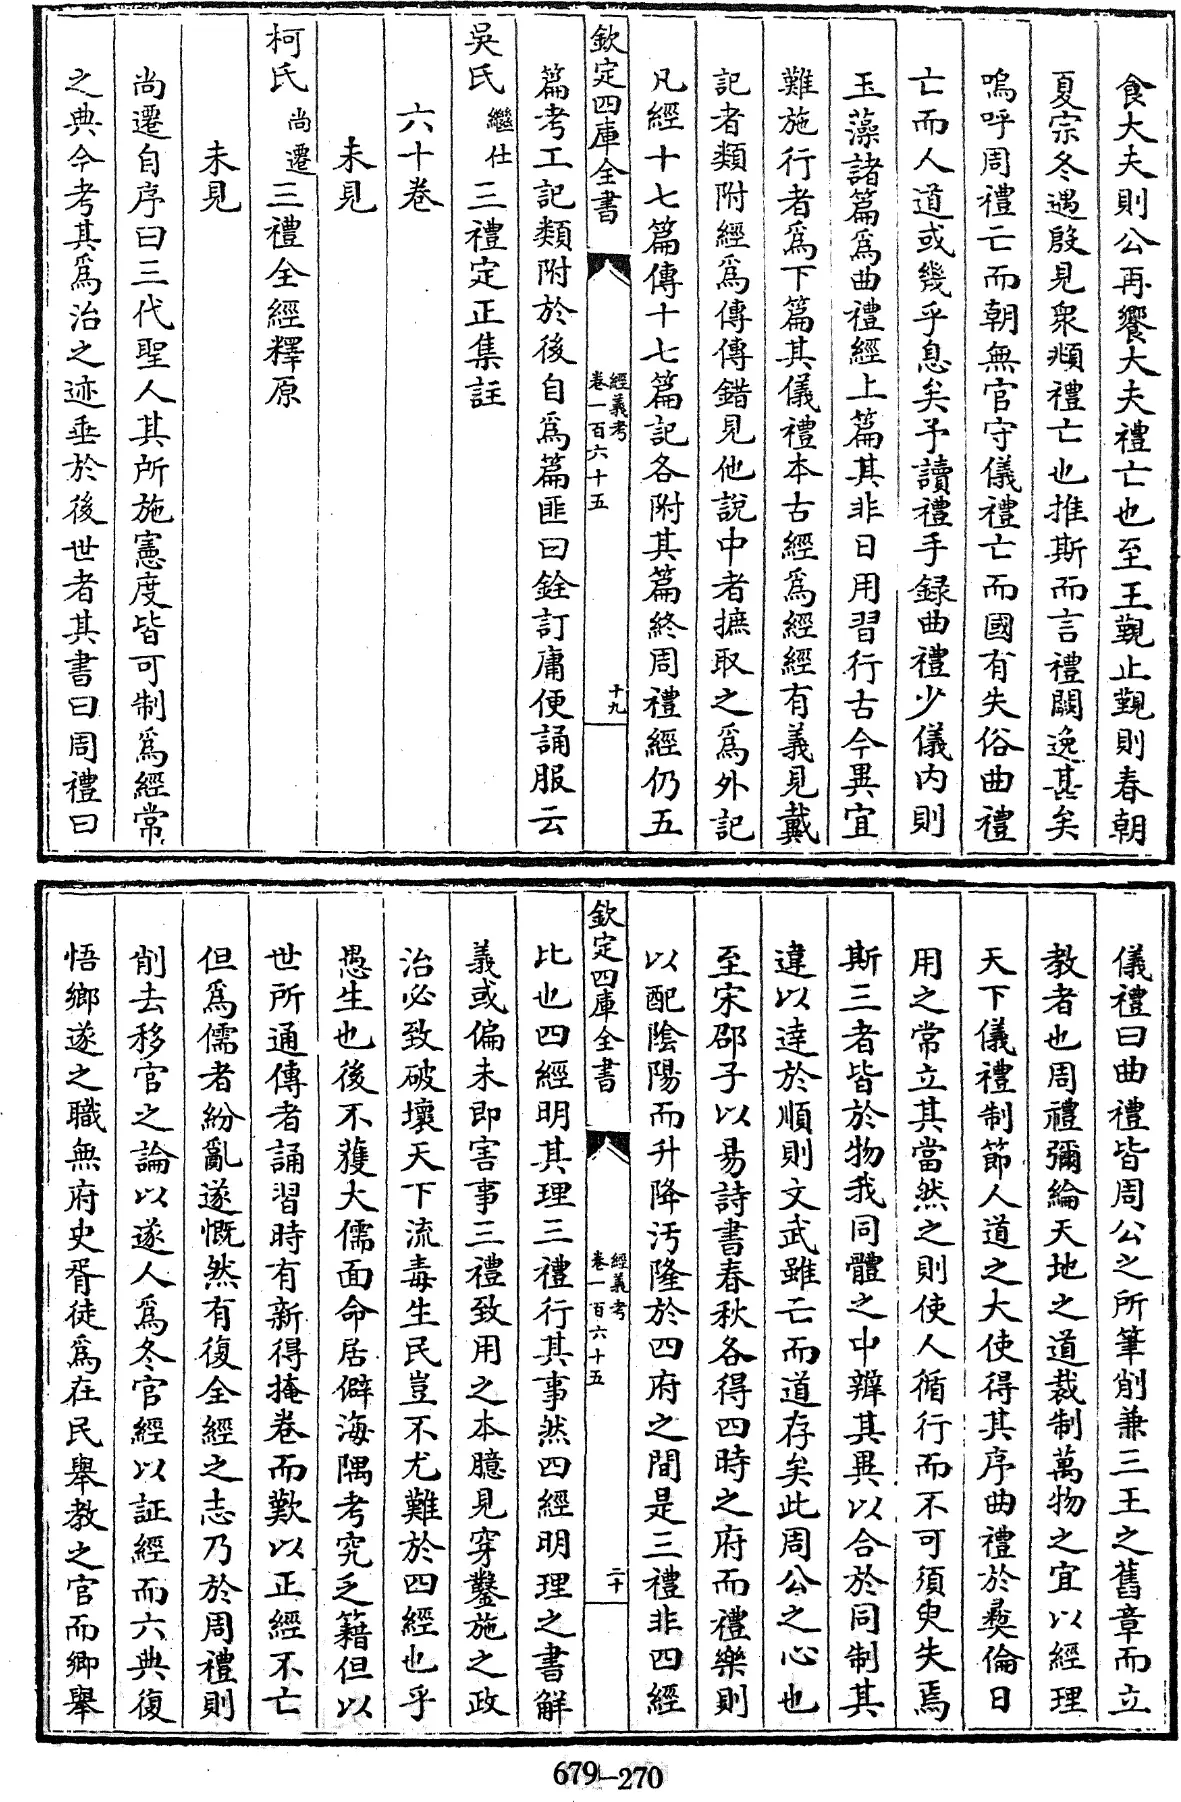 食大夫則公再饗大夫禮亡也至王覲止覲則春朝
夏宗冬遇殷見衆頫禮亡也推斯而言禮闕逸甚矣
嗚呼周禮亡而朝無官守儀禮亡而國有失俗曲禮
亡而人道或幾乎息矣予讀禮手録曲禮少儀内則
玉藻諸篇爲曲禮經上篇其非日用習行古今異宜
難施行者爲下篇其儀禮本古經爲經經有義見戴
記者類附經爲傳傳錯見他說中者摭取之爲外記
凡經十七篇傳十七篇記各附其篇終周禮經仍五
欽定四庫全書
經義考
卷一百六十五
十九
篇考工記類附於後自爲篇匪曰銓訂庸便誦服云
吳氏繼仕三禮定正集註
六十卷
未見
柯氏尚遷三禮全經釋原
未見
尚遷自序曰三代聖人其所施憲度皆可制爲經常
之典今考其爲治之迹垂於後世者其書曰周禮曰
儀禮曰曲禮皆周公之所筆削兼三王之舊章而立
教者也周禮彌綸天地之道裁制萬物之宜以經理
天下儀禮制節人道之大使得其序曲禮於彞倫日
用之常立其當然之則使人循行而不可須臾失焉
斯三者皆於物我同體之中辨其異以合於同制其
違以達於順則文武雖亡而道存矣此周公之心也
至宋邵子以易詩書春秋各得四時之府而禮樂則
以配陰陽而升降汚隆於四府之間是三禮非四經
欽定四庫全書
經義考
卷一百六十五
二十
比也四經明其理三禮行其事然四經明理之書解
義或偏未即害事三禮致用之本臆見穿鑿施之政
治必致破壞天下流毒生民豈不尤難於四經也乎
愚生也後不獲大儒面命居僻海隅考究乏籍但以
世所通傳者誦習時有新得掩卷而歎以正經不亡
但爲儒者紛亂遂慨然有復全經之志乃於周禮則
削去移官之論以遂人爲冬官經以証經而六典復
悟鄉遂之職無府史胥徒爲在民舉教之官而卿舉
679-270